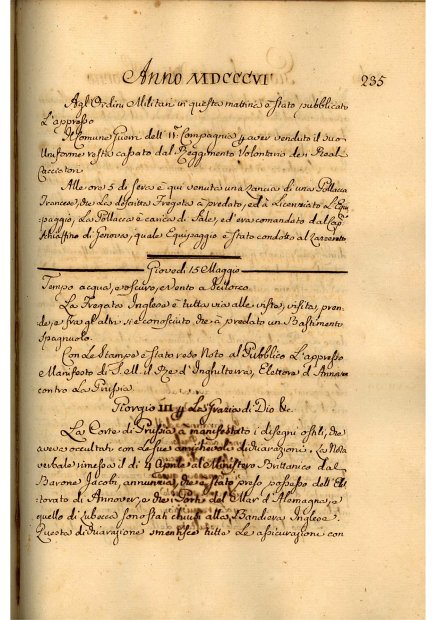 Anno MDCCCVI
235
Agl'Ordini Militari in questa mattina è stato pubblicato
L'appresso
Il Comune Guerri dell' 11.a Compagnia p aver venduto il suo
Uniforme resta cassato dal Reggimento Volontario de i Real
Cacciatori
Alle ore 5 di sera è qui venuta una Lancia di una Pollacca
Francese, che La descritta Fregata à predato, ed à Licenziato L'Equi-
paggio, La Pollacca è carica di Sale, ed era comandata dal Cap.
Schiaffino di Genova, quale Equipaggio è stato condotto al Lazzeretto
Giovedì 15 Maggio
Tempo acqua, e oscuro, e vento a Scilocco
La Fregata Inglese è tutta via alle viste, visita, pren-
de, e fra gl'altri si è conosciuto che à predato un Bastimento
Spagnuolo.
Con Le Stampe è stato reso Noto al Pubblico L'appresso
Manifesto di S. M. il Re d'Inghilterra, Elettore d'Annover
contro La Prussia
Giorgio III p La Grazia di Dio &c.
La Corte di Prussia à manifestato i disegni ostili, che
aveva occultati con le sue amichevoli dichiarazioni. La Nota
verbale rimessa il dì 4 Aprile al Ministero Brittanico dal
Barone Jacobi, annunzia, che è stato preso possesso dell' Elet-
torato di Annover, e che i Porti del Mar d'Alemagna, e
quello di Lubecca sono stati chiusi alla Bandiera Inglese.
Questa dichiarazione smentisce tutte Le assicurazioni con